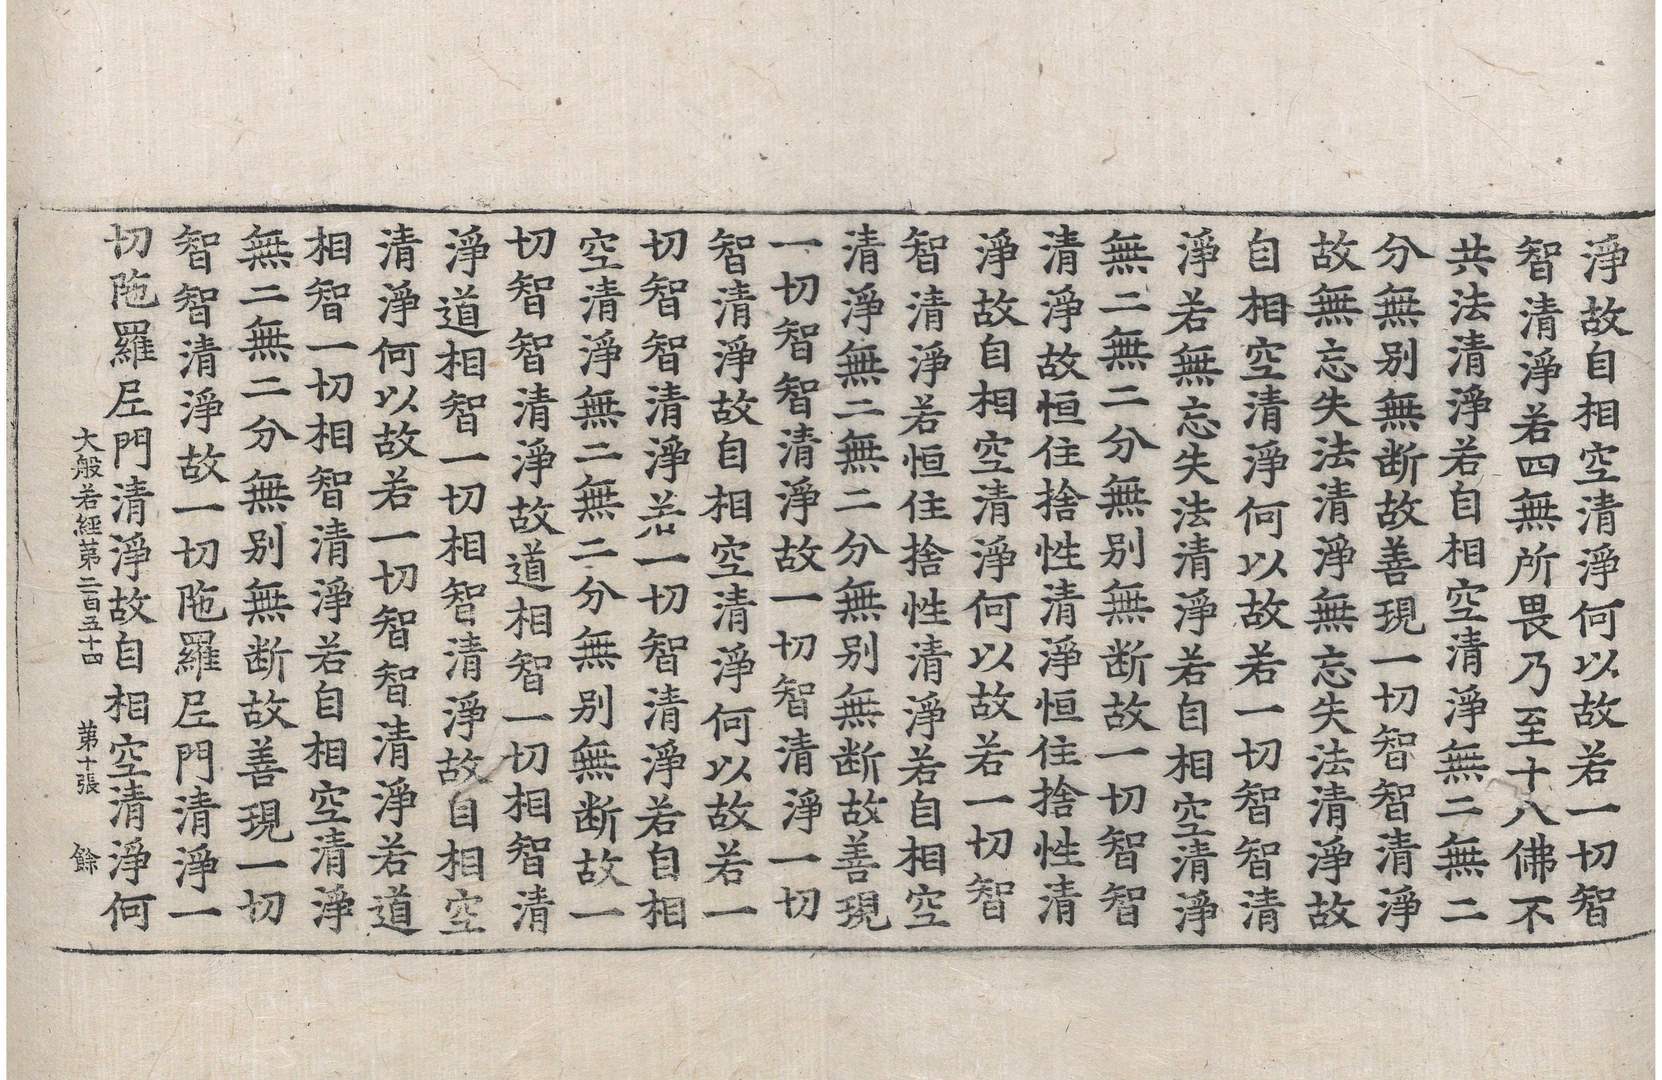 淨故自相空清淨何以故若一切智
智清淨若四無所畏乃至十八佛不
共法清淨若自相空清淨無二無二
分無別無断故善現一切智智清淨
故無忘失法清淨無忘失法清淨故
自相空清淨何以故若一切智智清
淨若無忘失法清淨若自相空清淨
無二無二分無別無断故一切智智
清淨故恒住捨性清淨恒住捨性清
淨故自相空清淨何以故若一切智
智清淨若恒住捨性清淨若自相空
清淨無二無二分無別無断故善現
一切智智清淨故一切智清淨一切
智清淨故自相空清淨何以故若一
切智智清淨若一切智清淨若自相
空清淨無二無二分無別無断故一
切智智清淨故道相智一切相智清
淨道相智一切相智清淨故自相空
清淨何以故若一切智智清淨若道
相智一切相智清淨若自相空清淨
無二無二分無別無断故善現一切
智智清淨故一切陁羅尼門清淨一
切陁羅尼門清淨故自相空清淨何
大般若經第二百五十四 第十張 餘